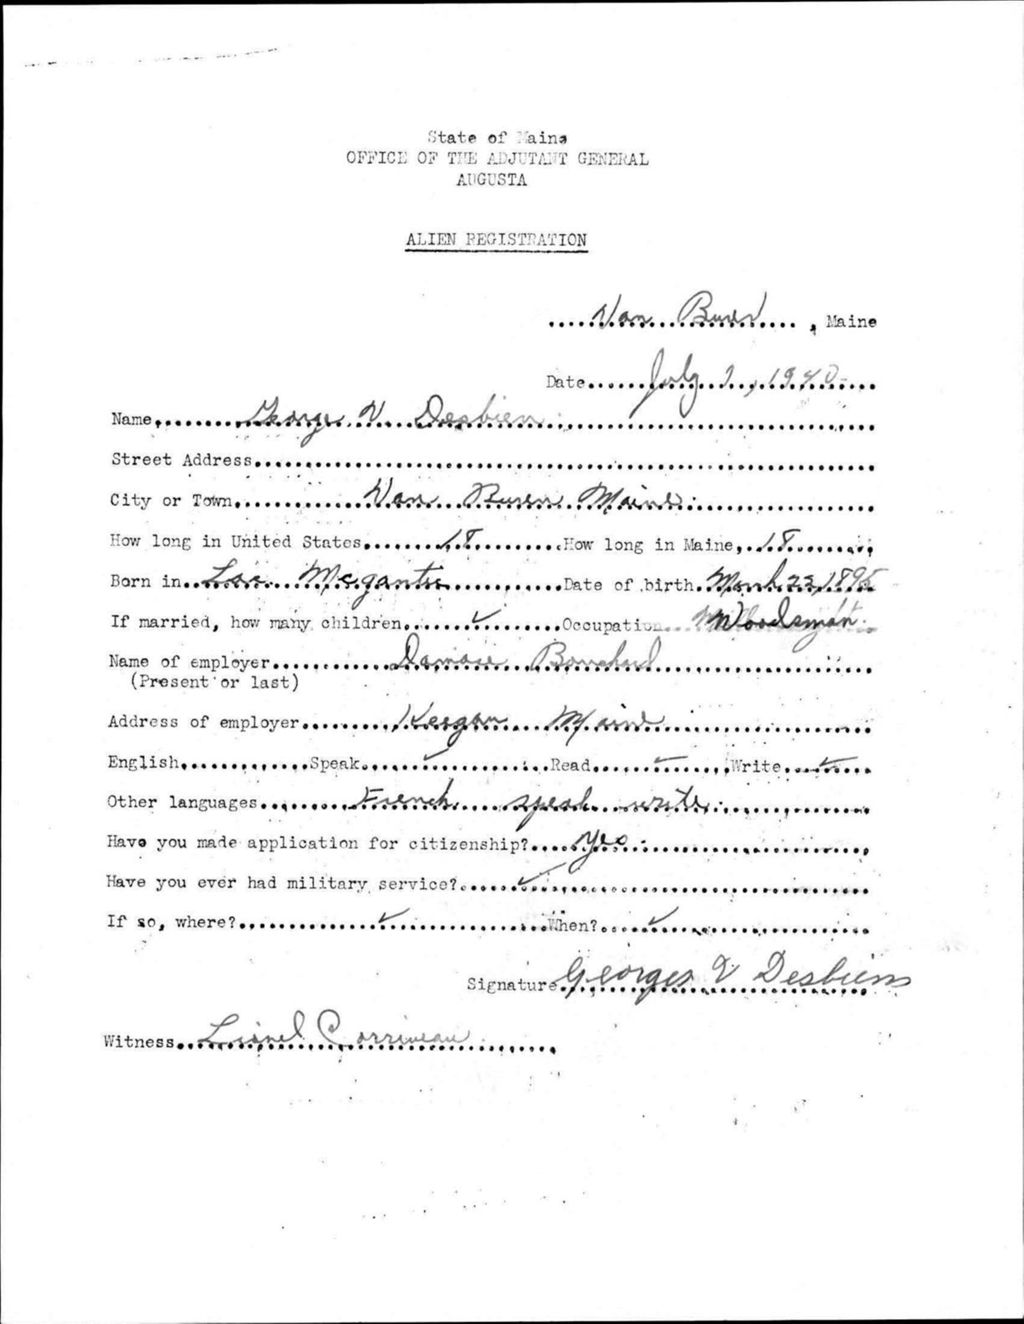 State of Maine
OFFICE OF THE ADJUTANT GENERAL
AUGUSTA
ALIEN REGISTRATION
Van Buren, Maine
Date July 2, 1940
Name George V. Desbien
Street Address
City or Town Van Buren Maine
How long in United States 18 How long in Maine, 18
Born in Lac Megantic Date of birth March 23, 1895
If married, how many children ✓ Occupation Woodsman
Name of employer Damase Bouchard
(Present or last)
Address of employer Keegan Maine
English Speak ✓ Read ✓ Write ✓
Other languages French speak write
Have you made application for citizenship? Yes
Have you ever had military service? ✓
If so, where? ✓ When? ✓
Signature Georges V Desbiens
Witness Lionel Corriveau